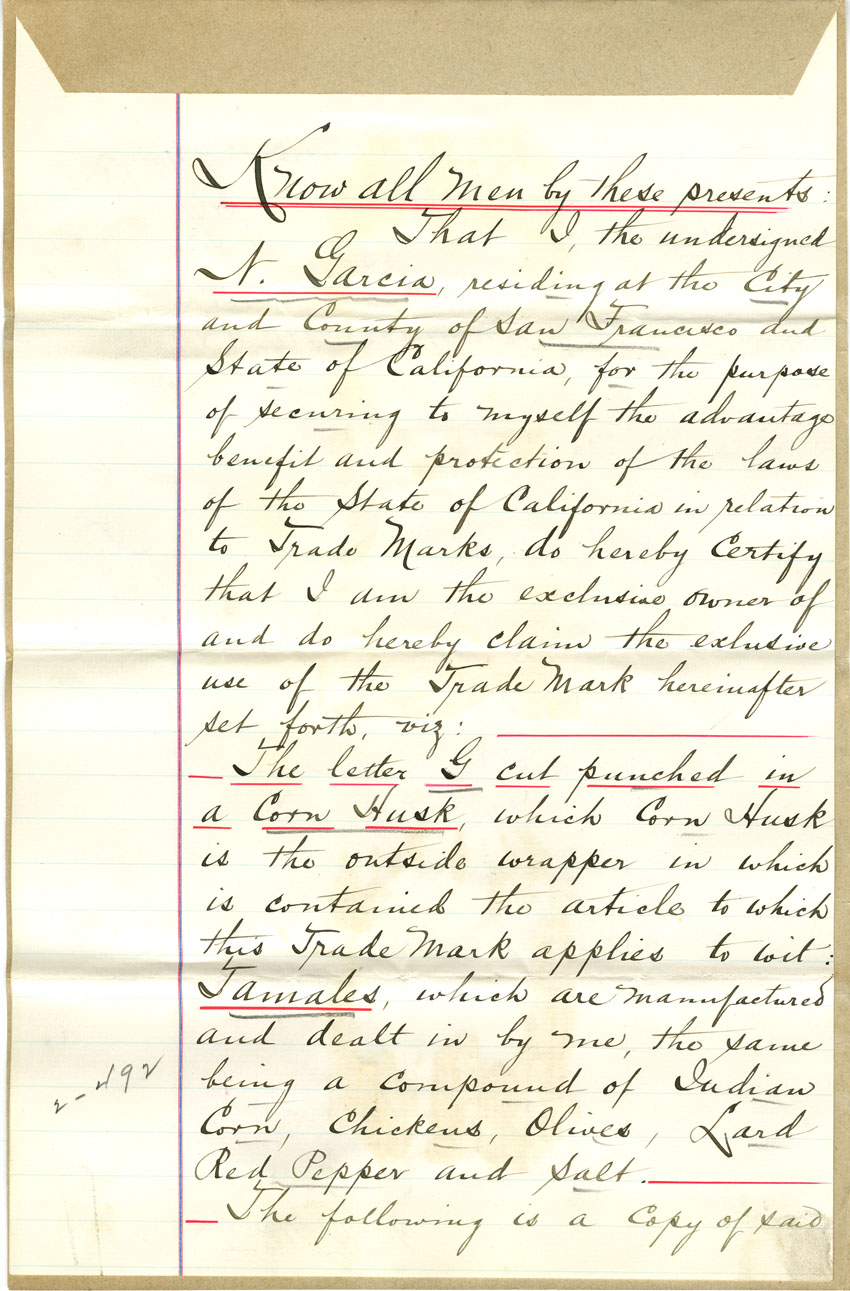 Know all Men by these presents:
That I, the undersigned
N. Garcia, residing at the City
and County of San Francisco and
State of California, for the purpose
of securing to myself the advantage
benefit and protection of the laws
of the State of California in relation
to Trade Marks, do hereby Certify
that I am the exclusive owner of
and do hereby claim the exlusive
use of the Trade Mark hereinafter
set forth, viz:
The letter G cut punched in
a Corn Husk, which Corn Husk
is the outside wrapper in which
is contained the article to which
this Trade Mark applies to wit:
Tamales, which are manufactured
and dealt in by me, the same
being a compound of Indian
Corn, Chickens, Olives, Lard
Red Pepper and Salt.
The following is a Copy of said
2-492